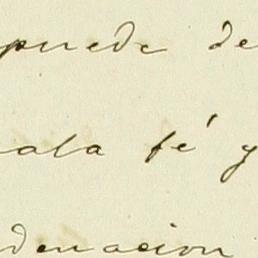 puede de
mala fé y
denacion